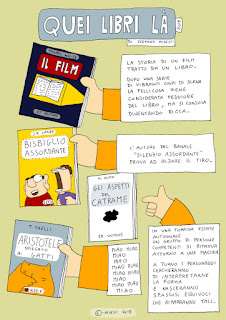 QUEI LIBRI LÀ
DI STEFANO
IL FILM
LA STORIA DI UN FILM
TRATTO DA UN LIBRO.
DOPO UNA SERIE
DI VIBRANTI COLPI DI SCENA
LA PELLICOLA VIENE
CONSIDERATA PEGGIORE
DEL LIBRO, MA SI CONSOLA
DIVENTANDO RICCA.
BISBIGLIO
ASSORDANTE
L'AUTORE DEL BANALE
"SILENZIO ASSORDANTE"
PROVA AD ALZARE IL TIRO.
GLI ASPETTI
DEL
CATRAME
IN UNA TORRIDA ESTATE
AUTUNNALE
UN GRUPPO DI PERSONE
COMPETENTI SI RITROVA
ATTORNO A UNA MACCHIA
A TURNO I PERSONAGGI
CERCHERANNO
DI INTERPRETARNE
LA FORMA
E NASCERANNO
SPASSOSI EQUIVOCI
CHE RIMARRANNO TALI.
ARISTOTELE
SPIEGATO
AI GATTI
MIAO MIAO
MIAO
MIAO MIAO
MIAO MIAO
MIAO MIAO
MIAO
MIAO MIAO
MIAO